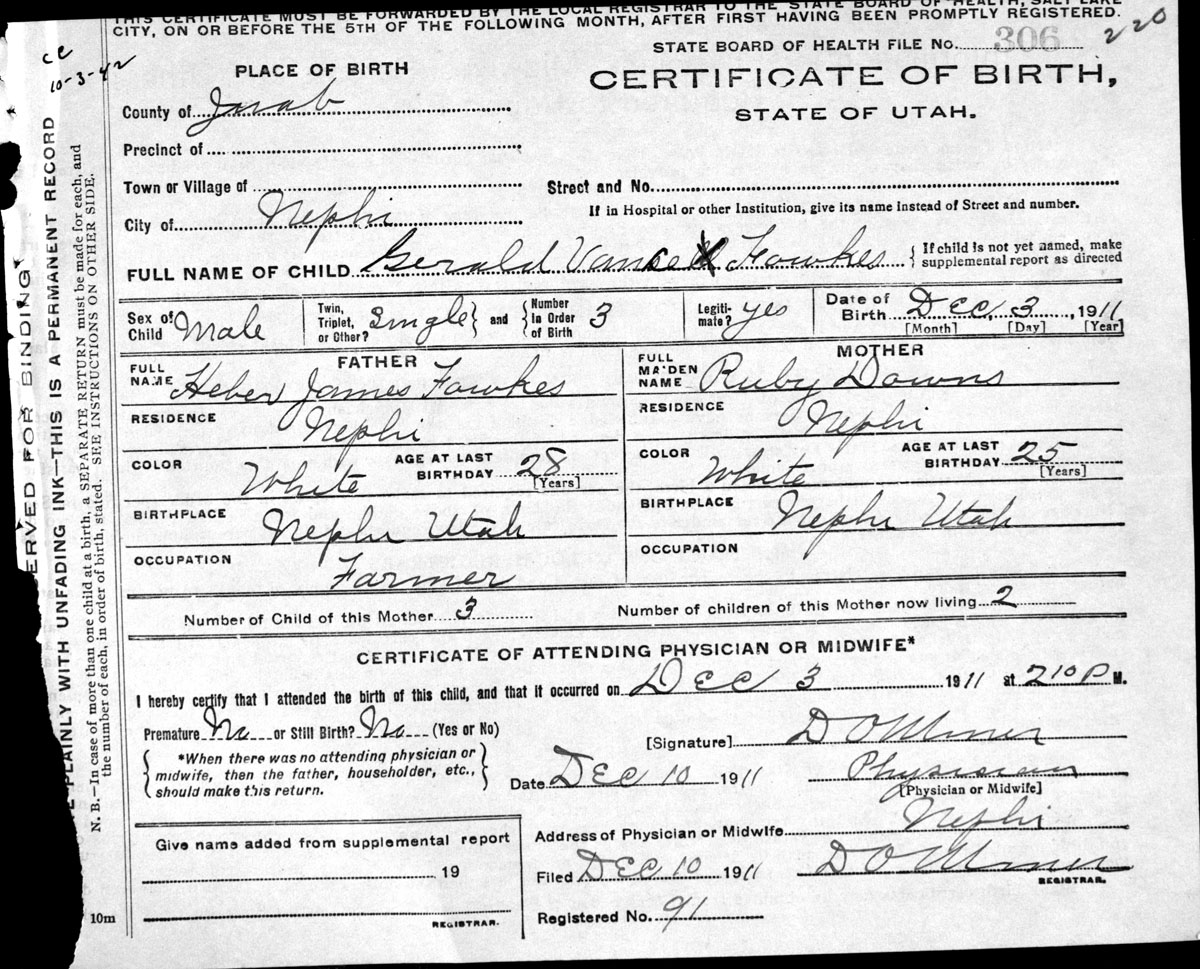 THIS CERTIFICATE MUST BE FORWARDED BY THE LOCAL REGISTRAR TO THE STATE BOARD OF HEALTH, SALT LAKE
CITY, ON OR BEFORE THE 5TH OF THE FOLLOWING MONTH, AFTER FIRST HAVING BEEN PROMPTLY REGISTERED.
220
STATE BOARD OF HEALTH FILE No. 306
cc
10-3-42
CERTIFICATE OF BIRTH,
STATE OF UTAH.
PLACE OF BIRTH
County of Juab
Precinct of
Town or Village of
Street and No.
City of Nephi
If in Hospital or other Institution, give its name instead of Street and number.
FULL NAME OF CHILD Gerald Vance Fowkes { If child is not yet named, make
supplemental report as directed
Sex of Child Male
Twin, Triplet, or Other? Single } and { Number In Order of Birth 3
Legiti-mate? yes
Date of Birth Dec, 3, 1911
[Month] [Day] [Year]
FATHER
FULL NAME Heber James Fowkes
RESIDENCE Nephi
COLOR White
AGE AT LAST BIRTHDAY 28
[Years]
BIRTHPLACE Nephi Utah
OCCUPATION Farmer
MOTHER
FULL MAIDEN NAME Ruby Downs
RESIDENCE Nephi
COLOR White
AGE AT LAST BIRTHDAY 25
[Years]
BIRTHPLACE Nephi Utah
OCCUPATION
Number of Child of this Mother 3 Number of children of this Mother now living 2
CERTIFICATE OF ATTENDING PHYSICIAN OR MIDWIFE*
I hereby certify that I attended the birth of this child, and that it occurred on Dec 3 1911 at 2 10 P M.
Premature No or Still Birth? No (Yes or No)
*When there was no attending physician or
midwife, then the father, householder, etc.,
should make this return.
[Signature] D O Miner
Date Dec 10 1911 Physician
[Physician or Midwife]
Address of Physician or Midwife Nephi
Filed Dec 10 1911 D O Miner
REGISTRAR.
Registered No. 91
Give name added from supplemental report
19
REGISTRAR.
10m
ERVED FOR BINDING
PLAINLY WITH UNFADING INK—THIS IS A PERMANENT RECORD
N. B.—In case of more than one child at a birth, a SEPARATE RETURN must be made for each, and
the number of each, in order of birth, stated. SEE INSTRUCTIONS ON OTHER SIDE.